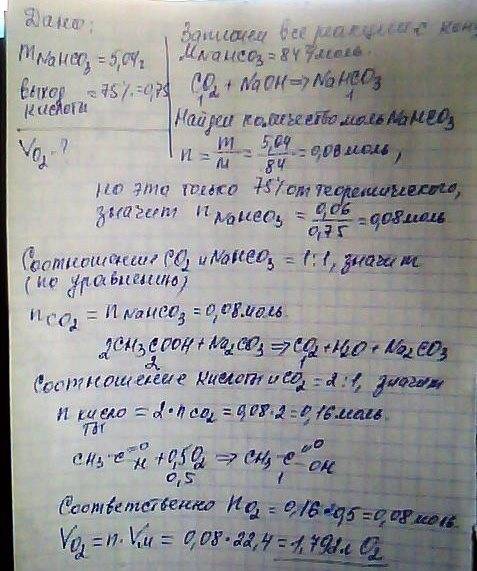 Дано:
Запишем все реакции с кон
m NaHCO3 = 5,04г
M NaHCO3 = 84 г/моль.
выход кислоты = 75% = 0,75
CO2 + NaOH ⇒ NaHCO3
1 1
VO2 - ?
Найдем количество моль NaHCO3
n = m/M = 5,04/84 = 0,06 моль,
но это только 75% от теоретического,
значит n NaHCO3 = 0,06/0,75 = 0,08 моль
Соотношение CO2 и NaHCO3 = 1:1, значит
(по уравнению)
n CO2 = n NaHCO3 = 0,08 моль.
2CH3COOH + Na2CO3 ⇒ CO2 + H2O + Na2CO3
2 1
Соотношение кислоты и CO2 = 2:1, значит
n кислоты = 2·n CO2 = 0,08·2 = 0,16 моль.
CH3-C=O H + 0,5O2 ⇒ CH3-C=O OH
0,5 1
Соответственно nO2 = 0,16·0,5 = 0,08 моль.
VO2 = n·Vм = 0,08·22,4 = 1,792л O2